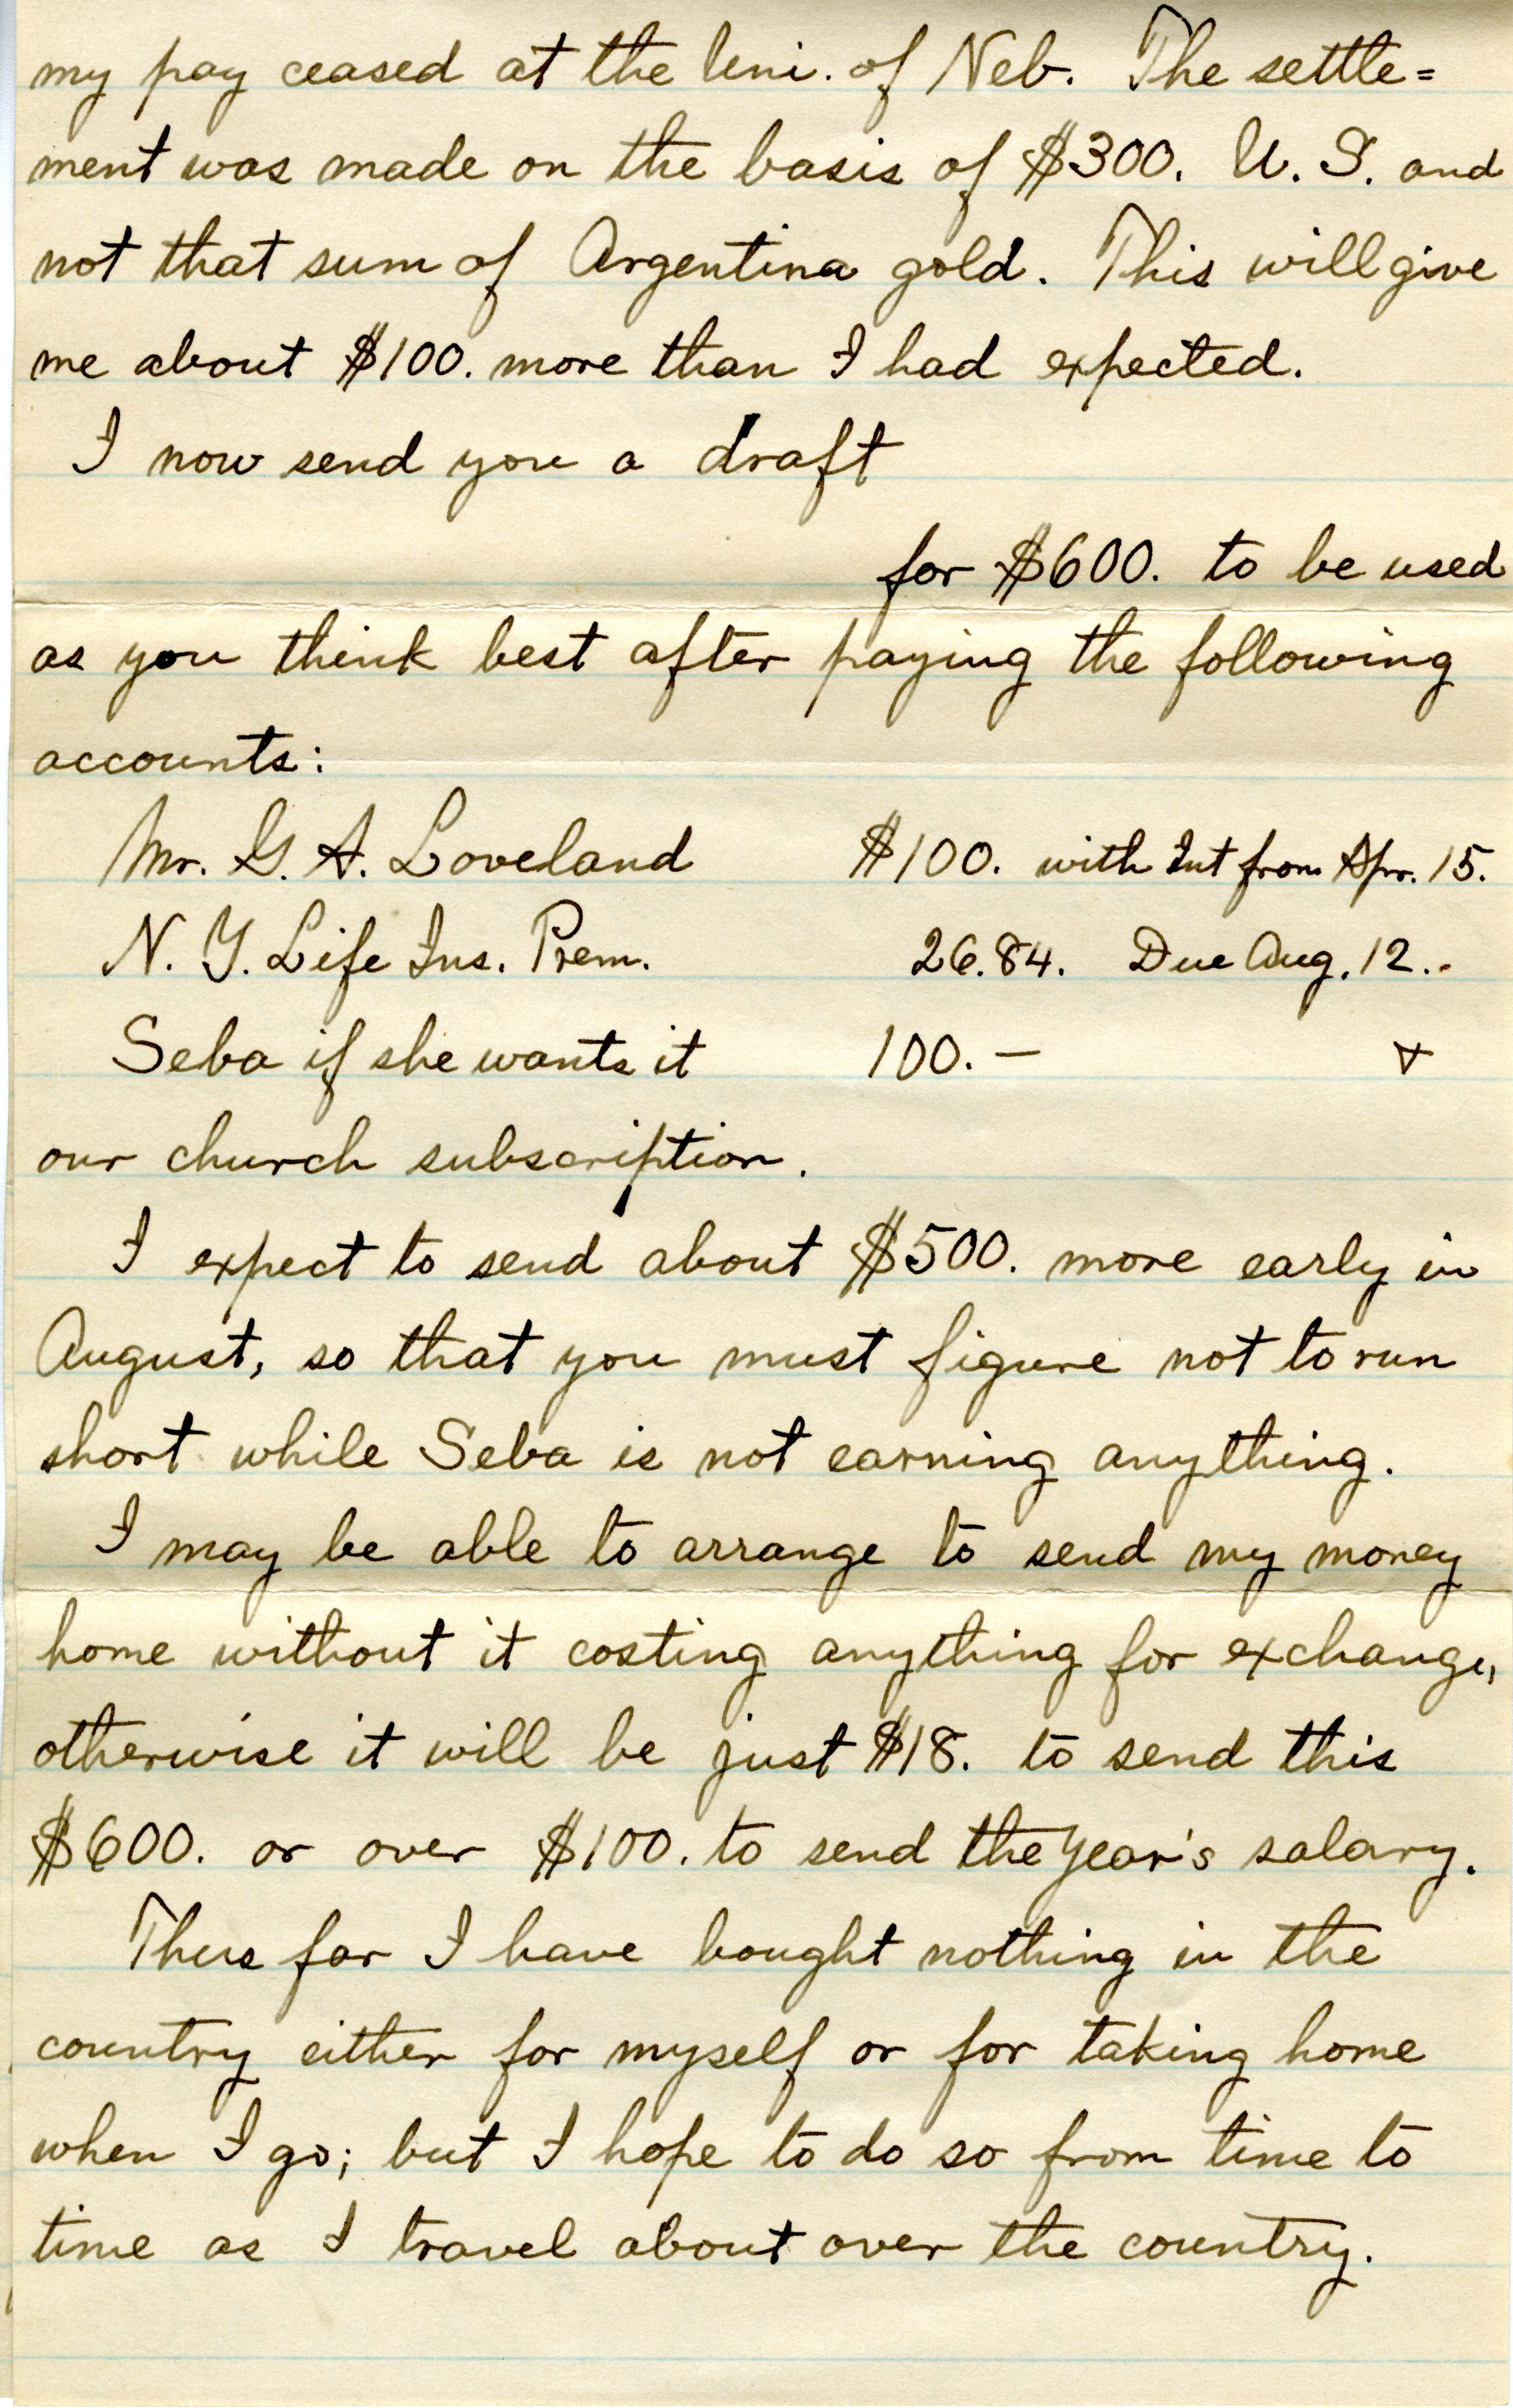 my pay ceased at the Uni. of Neb. The settle=
ment was made on the basis of $300. U. S. and
not that sum of Argentina gold. This will give
me about $100. more than I had expected.
I now send you a draft
for $600. to be used
as you think best after paying the following
accounts:
Mr. G. A. Loveland $100. with Int from Apr. 15.
N. Y. Life Ins. Prem. 26.84. Due Aug. 12..
Seba if she wants it 100. —
our church subscription.
I expect to send about $500. more early in
August, so that you must figure not to run
short while Seba is not earning anything.
I may be able to arrange to send my money
home without it costing anything for exchange,
otherwise it will be just $18. to send this
$600. or over $100. to send the year's salary.
Thus far I have bought nothing in the
country either for myself or for taking home
when I go; but I hope to do so from time to
time as I travel about over the country.